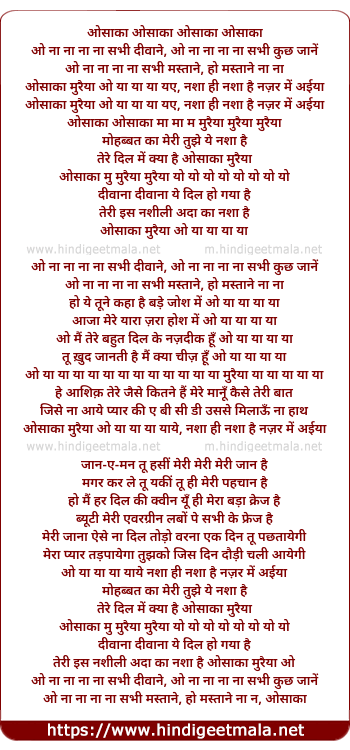 ओसाका ओसाका ओसाका ओसाका
ओ ना ना ना ना सभी दीवाने, ओ ना ना ना ना सभी कुछ जानें
ओ ना ना ना ना सभी मस्ताने, हो मस्ताने ना ना
ओसाका मुरैया ओ या या या यए, नशा ही नशा है नज़र में अईया
ओसाका मुरैया ओ या या या यए, नशा ही नशा है नज़र में अईया
ओसाका ओसाका मा मा म मुरैया मुरैया मुरैया
मोहब्बत का मेरी तुझे ये नशा है
तेरे दिल में क्या है ओसाका मुरैया
ओसाका मु मुरैया मुरैया यो यो यो यो यो यो यो यो
दीवाना दीवाना ये दिल हो गया है
तेरी इस नशीली अदा का नशा है
ओसाका मुरैया ओ या या या या
www.hindigeetmala.net m.hindigeetmala.net
ओ ना ना ना ना सभी दीवाने, ओ ना ना ना ना सभी कुछ जानें
ओ ना ना ना ना सभी मस्ताने, हो मस्ताने ना ना
हो ये तूने कहा है बड़े जोश में ओ या या या या
आजा मेरे यारा ज़रा होश में ओ या या या या
ओ मैं तेरे बहुत दिल के नज़दीक हूँ ओ या या या या
तू ख़ुद जानती है मैं क्या चीज़ हूँ ओ या या या या
ओ या या या या या या या या या या या मुरैया या या या या या
हे आशिक़ तेरे जैसे कितने हैं मेरे मानूँ कैसे तेरी बात
जिसे ना आये प्यार की ए बी सी डी उससे मिलाऊँ ना हाथ
ओसाका मुरैया ओ या या या याये, नशा ही नशा है नज़र में अईया
www.hindigeetmala.net m.hindigeetmala.net
जान-ए-मन तू हसीं मेरी मेरी मेरी जान है
मगर कर ले तू यकीं तू ही मेरी पहचान है
हो मैं हर दिल की क्वीन यूँ ही मेरा बड़ा क्रेज है
ब्यूटी मेरी एवरग्रीन लबों पे सभी के फ्रेज है
मेरी जाना ऐसे ना दिल तोड़ो वरना एक दिन तू पछतायेगी
मेरा प्यार तड़पायेगा तुझको जिस दिन दौड़ी चली आयेगी
ओ या या या याये नशा ही नशा है नज़र में अईया
मोहब्बत का मेरी तुझे ये नशा है
तेरे दिल में क्या है ओसाका मुरैया
ओसाका मु मुरैया मुरैया यो यो यो यो यो यो यो यो
दीवाना दीवाना ये दिल हो गया है
तेरी इस नशीली अदा का नशा है ओसाका मुरैया ओ
ओ ना ना ना ना सभी दीवाने, ओ ना ना ना ना सभी कुछ जानें
ओ ना ना ना ना सभी मस्ताने, हो मस्ताने ना न, ओसाका
https://www.hindigeetmala.net